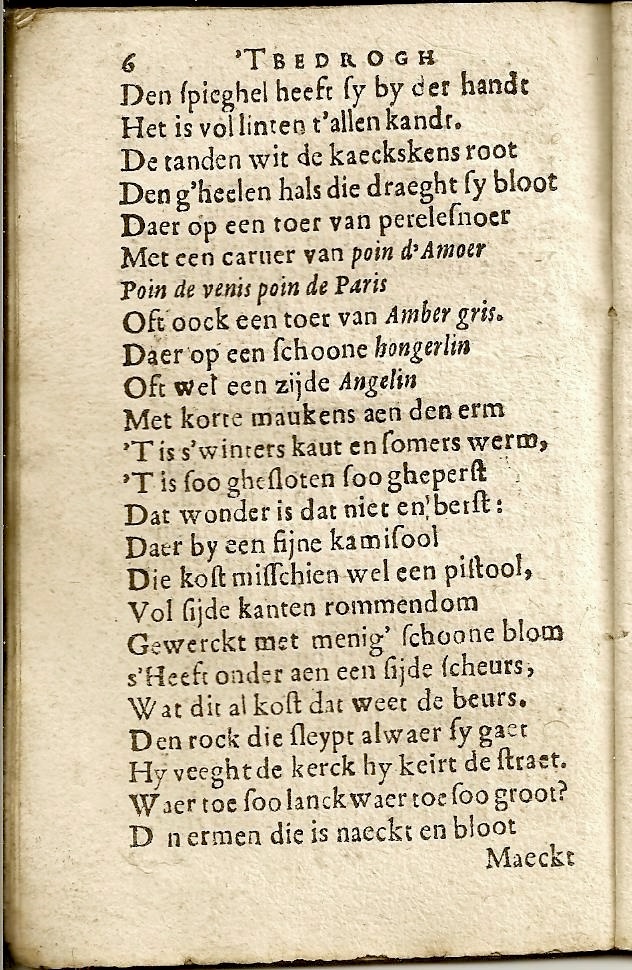 6 'TBEDROGH
Den ſpieghel heeft ſy by der handt
Het is vol linten t'allen kandt.
De tanden wit de kaeckskens root
Den g'heelen hals die draeght ſy bloot
Daer op een toer van pereleſnoer
Met een caruer van poin d'Amoer
Poin de venis poin de Paris
Oft oock een toer van Amber gris.
Daer op een ſchoone hongerlin
Oft wel een zijde Angelin
Met korte maukens aen den erm
'T is s'winters kaut en ſomers werm,
'T is ſoo gheſloten ſoo gheperſt
Dat wonder is dat niet en berſt:
Daer by een fijne kamiſool
Die koſt miſſchien wel een piſtool,
Vol ſijde kanten rommendom
Gewerckt met menig' ſchoone blom
s'Heeft onder aen een ſijde ſcheurs,
Wat dit al koſt dat weet de beurs.
Den rock die ſleypt alwaer ſy gaet
Hy veeght de kerck hy keirt de ſtraet.
Waer toe ſoo lanck waer toe ſoo groot?
D n ermen die is naeckt en bloot
Maeckt